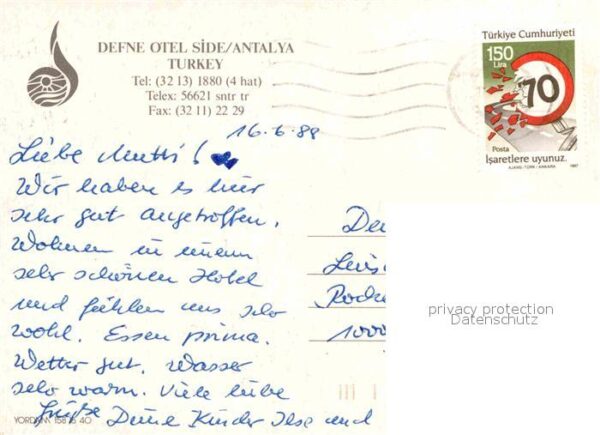 DEFNE OTEL SİDE/ANTALYA
TURKEY
Tel: (32 13) 1880 (4 hat)
Telex: 56621 sntr tr
Fax: (32 11) 22 29
Türkiye Cumhuriyeti
150
Lira
70
Posta
İşaretlere uyunuz.
AJANS-TÜRK - ANKARA 1987
16.6.88
Liebe Mutti!
Wir haben es hier
sehr gut angetroffen.
Wohnen in einem
sehr schönen Hotel
und fühlen uns sehr
wohl. Essen prima.
Wetter gut. Wasser
sehr warm. Viele liebe
Grüße Deine Kinder Ilse und
1000
privacy protection
Datenschutz
YORDAM 158 B 40